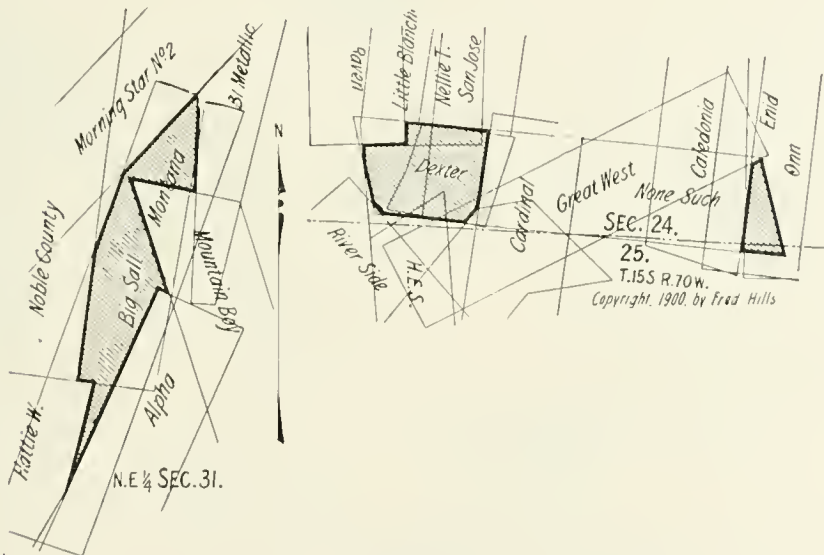 Morning Star No. 2
31 Metallic
N
Noble County
Montana
Mountain Boy
Big Sall
Alpha
Hattie W.
N.E ¼ SEC. 31.
Raven
Little Blanch
Nellie T.
San Jose
Dexter
River Side
H.E.S.
Cardinal
Great West
None Such
Caledonia
Enid
Onn
SEC. 24.
25.
T.15S R.70W.
Copyright, 1900, by Fred Hills